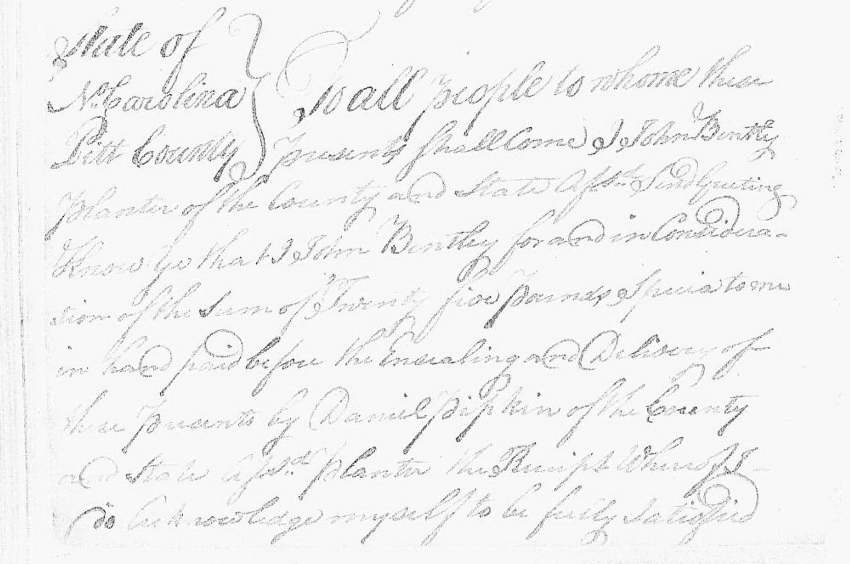 State of
No. Carolina } To all people to whome these
Pitt County } presents shall Come I John Bentley
planter of the County and State Afsd. Send Greeting
Know Ye that I John Bentley for and in Considera-
tion of the Sum of Twenty five pounds Specia to me
in hand paid before the Ensealing and Delivery of
these presents by Daniel Pipkin of the County
and State Afsd. planter the Receipt Whereof I
do Acknowledge myself to be fully Satisfied